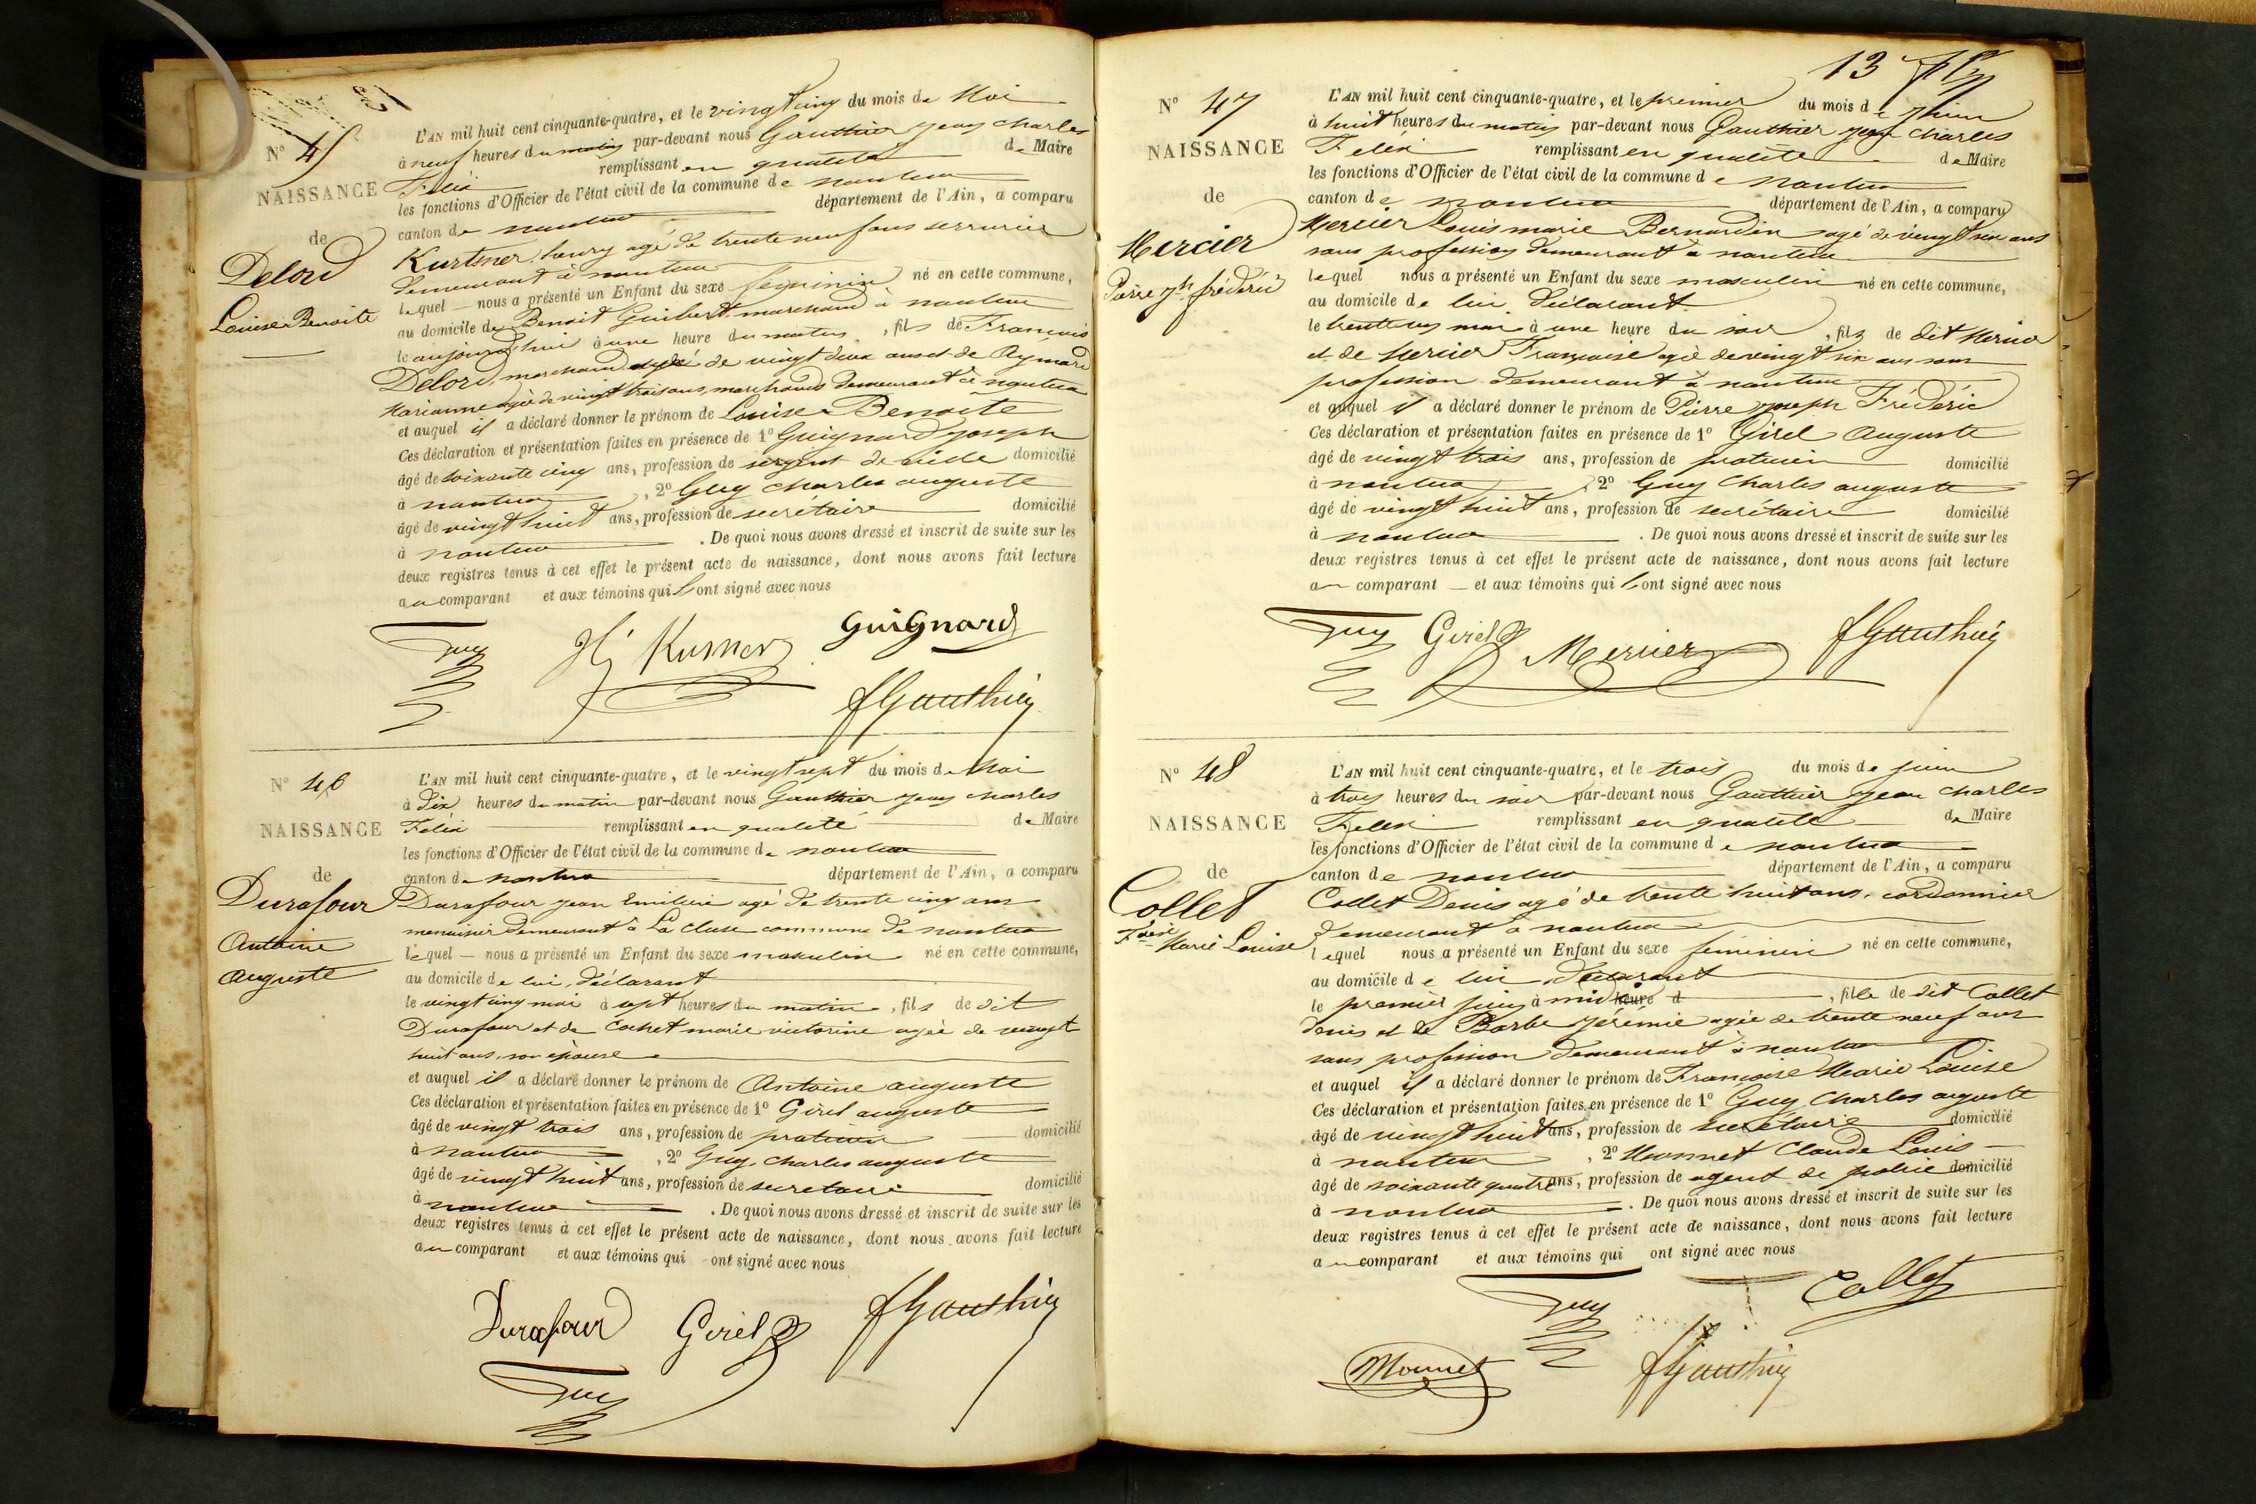 N° 45
NAISSANCE
de
Delord
Louise Benoite
L'AN mil huit cent cinquante-quatre, et le vingt cinq du mois de Mai
à neuf heures du matin par-devant nous Gauthier jean charles
Félix remplissant en qualité de Maire
les fonctions d'Officier de l'état civil de la commune de nantua
canton de nantua département de l'Ain, a comparu
Kurtsner, henry agé de trente neuf ans serrurier
demeurant à nantua
lequel nous a présenté un Enfant du sexe féminin né en cette commune,
au domicile de Benoit Guibert marchand à nantua
le aujourd'hui à une heure du matin, fils de François
Delord, marchand agé de vingt deux ans et de Aymard
Marianne agée de vingt trois ans, marchands demeurant à nantua
et auquel il a déclaré donner le prénom de Louise Benoîte
Ces déclaration et présentation faites en présence de 1° Guignard joseph
âgé de soixante cinq ans, profession de sergent de ville domicilié
à nantua, 2° Guy charles auguste
âgé de vingt huit ans, profession de secrétaire domicilié
à nantua. De quoi nous avons dressé et inscrit de suite sur les
deux registres tenus à cet effet le présent acte de naissance, dont nous avons fait lecture
au comparant et aux témoins qui ont signé avec nous
Guy
Hy Kusner
GuiGnard
fGauthier
N° 46
NAISSANCE
de
Durafour
Antoine
Auguste
L'AN mil huit cent cinquante-quatre, et le vingt sept du mois de Mai
à dix heures du matin par-devant nous Gauthier jean charles
Félix remplissant en qualité de Maire
les fonctions d'Officier de l'état civil de la commune de nantua
canton de nantua département de l'Ain, a comparu
Durafour jean Emilien agé de trente cinq ans
menuisier demeurant à La Cluse commune de nantua
lequel nous a présenté un Enfant du sexe masculin né en cette commune,
au domicile de lui, déclarant
le vingt cinq mai à sept heures du matin, fils de dit
Durafour et de Cochet marie victorine agée de vingt
huit ans, son épouse
et auquel il a déclaré donner le prénom de Antoine auguste
Ces déclaration et présentation faites en présence de 1° Girel auguste
âgé de vingt trois ans, profession de praticien domicilié
à nantua, 2° Guy, charles auguste
âgé de vingt huit ans, profession de secretaire domicilié
à nantua. De quoi nous avons dressé et inscrit de suite sur les
deux registres tenus à cet effet le présent acte de naissance, dont nous avons fait lecture
au comparant et aux témoins qui ont signé avec nous
Durafour
Girel
fGauthier
Guy
13
N° 47
NAISSANCE
de
Mercier
Pierre jph frédéric
L'AN mil huit cent cinquante-quatre, et le premier du mois de juin
à huit heures du matin par-devant nous Gauthier jean charles
Félix remplissant en qualité de Maire
les fonctions d'Officier de l'état civil de la commune de nantua
canton de nantua département de l'Ain, a comparu
Mercier Louis marie Bernardin agé de vingt six ans
sans profession demeurant à nantua
lequel nous a présenté un Enfant du sexe masculin né en cette commune,
au domicile de lui déclarant
le trente un mai à une heure du soir, fils de dit Mercier
et de Mercier Françoise agée de vingt six ans sans
profession demeurant à nantua
et auquel il a déclaré donner le prénom de Pierre joseph Frédéric
Ces déclaration et présentation faites en présence de 1° Girel Auguste
âgé de vingt trois ans, profession de praticien domicilié
à nantua, 2° Guy Charles auguste
âgé de vingt huit ans, profession de secrétaire domicilié
à nantua. De quoi nous avons dressé et inscrit de suite sur les
deux registres tenus à cet effet le présent acte de naissance, dont nous avons fait lecture
au comparant et aux témoins qui ont signé avec nous
Guy
Girel
Mercier
fGauthier
N° 48
NAISSANCE
de
Collet
Foise Marie Louise
L'AN mil huit cent cinquante-quatre, et le trois du mois de juin
à trois heures du soir par-devant nous Gauthier jean Charles
Félix remplissant en qualité de Maire
les fonctions d'Officier de l'état civil de la commune de nantua
canton de nantua département de l'Ain, a comparu
Collet Denis agé de trente huit ans, cordonnier
demeurant à nantua
lequel nous a présenté un Enfant du sexe féminin né en cette commune,
au domicile de lui déclarant
le premier juin à midi heure d, fille de dit Collet
Denis et de Barbe jérémie agée de trente neuf ans
sans profession demeurant à nantua
et auquel il a déclaré donner le prénom de Françoise Marie Louise
Ces déclaration et présentation faites en présence de 1° Guy Charles auguste
âgé de vingt huit ans, profession de secrétaire domicilié
à nantua, 2° Monnet Claude Louis
âgé de soixante quatre ans, profession de agent de police domicilié
à nantua. De quoi nous avons dressé et inscrit de suite sur les
deux registres tenus à cet effet le présent acte de naissance, dont nous avons fait lecture
au comparant et aux témoins qui ont signé avec nous
Collet
Guy
Monnet
fGauthier